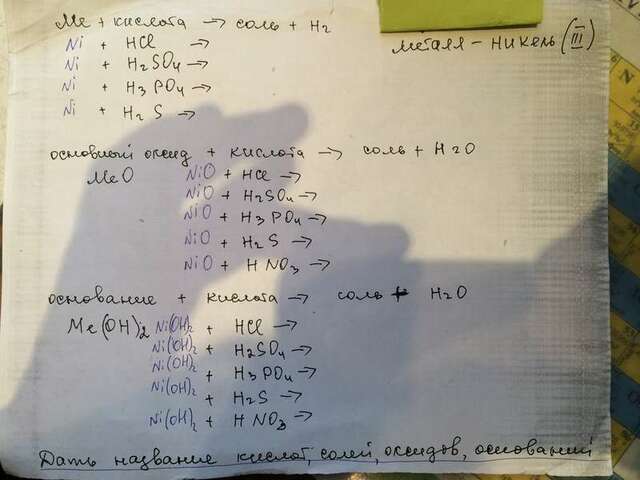 Me + кислота → соль + H2
металл - никель (III)
Ni + HCl →
Ni + H2SO4 →
Ni + H3PO4 →
Ni + H2S →
основный оксид + кислота → соль + H2O
MeO NiO + HCl →
NiO + H2SO4 →
NiO + H3PO4 →
NiO + H2S →
NiO + HNO3 →
основание + кислота → соль + H2O
Me(OH)2 Ni(OH)2 + HCl →
Ni(OH)2 + H2SO4 →
Ni(OH)2 + H3PO4 →
Ni(OH)2 + H2S →
Ni(OH)2 + HNO3 →
Дать название кислот, солей, оксидов, оснований